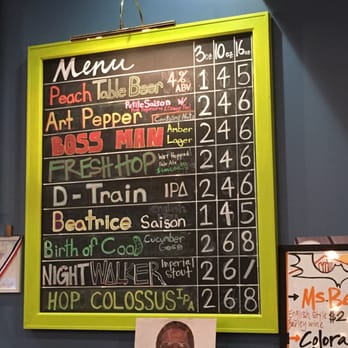 Menu 3oz 10oz 16oz
Peach Table Beer 4% ABV 1 4 5
Art Pepper Petite Saison w/ 2 4 6
BOSS MAN Amber Lager 2 4 6
FRESH HOP Wet Hopped Pale Ale 2 4 6
D-Train IPA 2 4 6
Beatrice Saison 1 4 5
Birth of Cool Cucumber Gose 2 6 8
NIGHT WALKER Imperial Stout 2 6 7
HOP COLOSSUS IPA 2 6 8
→Ms.Be
English Style $2
Barley wine
→Colora